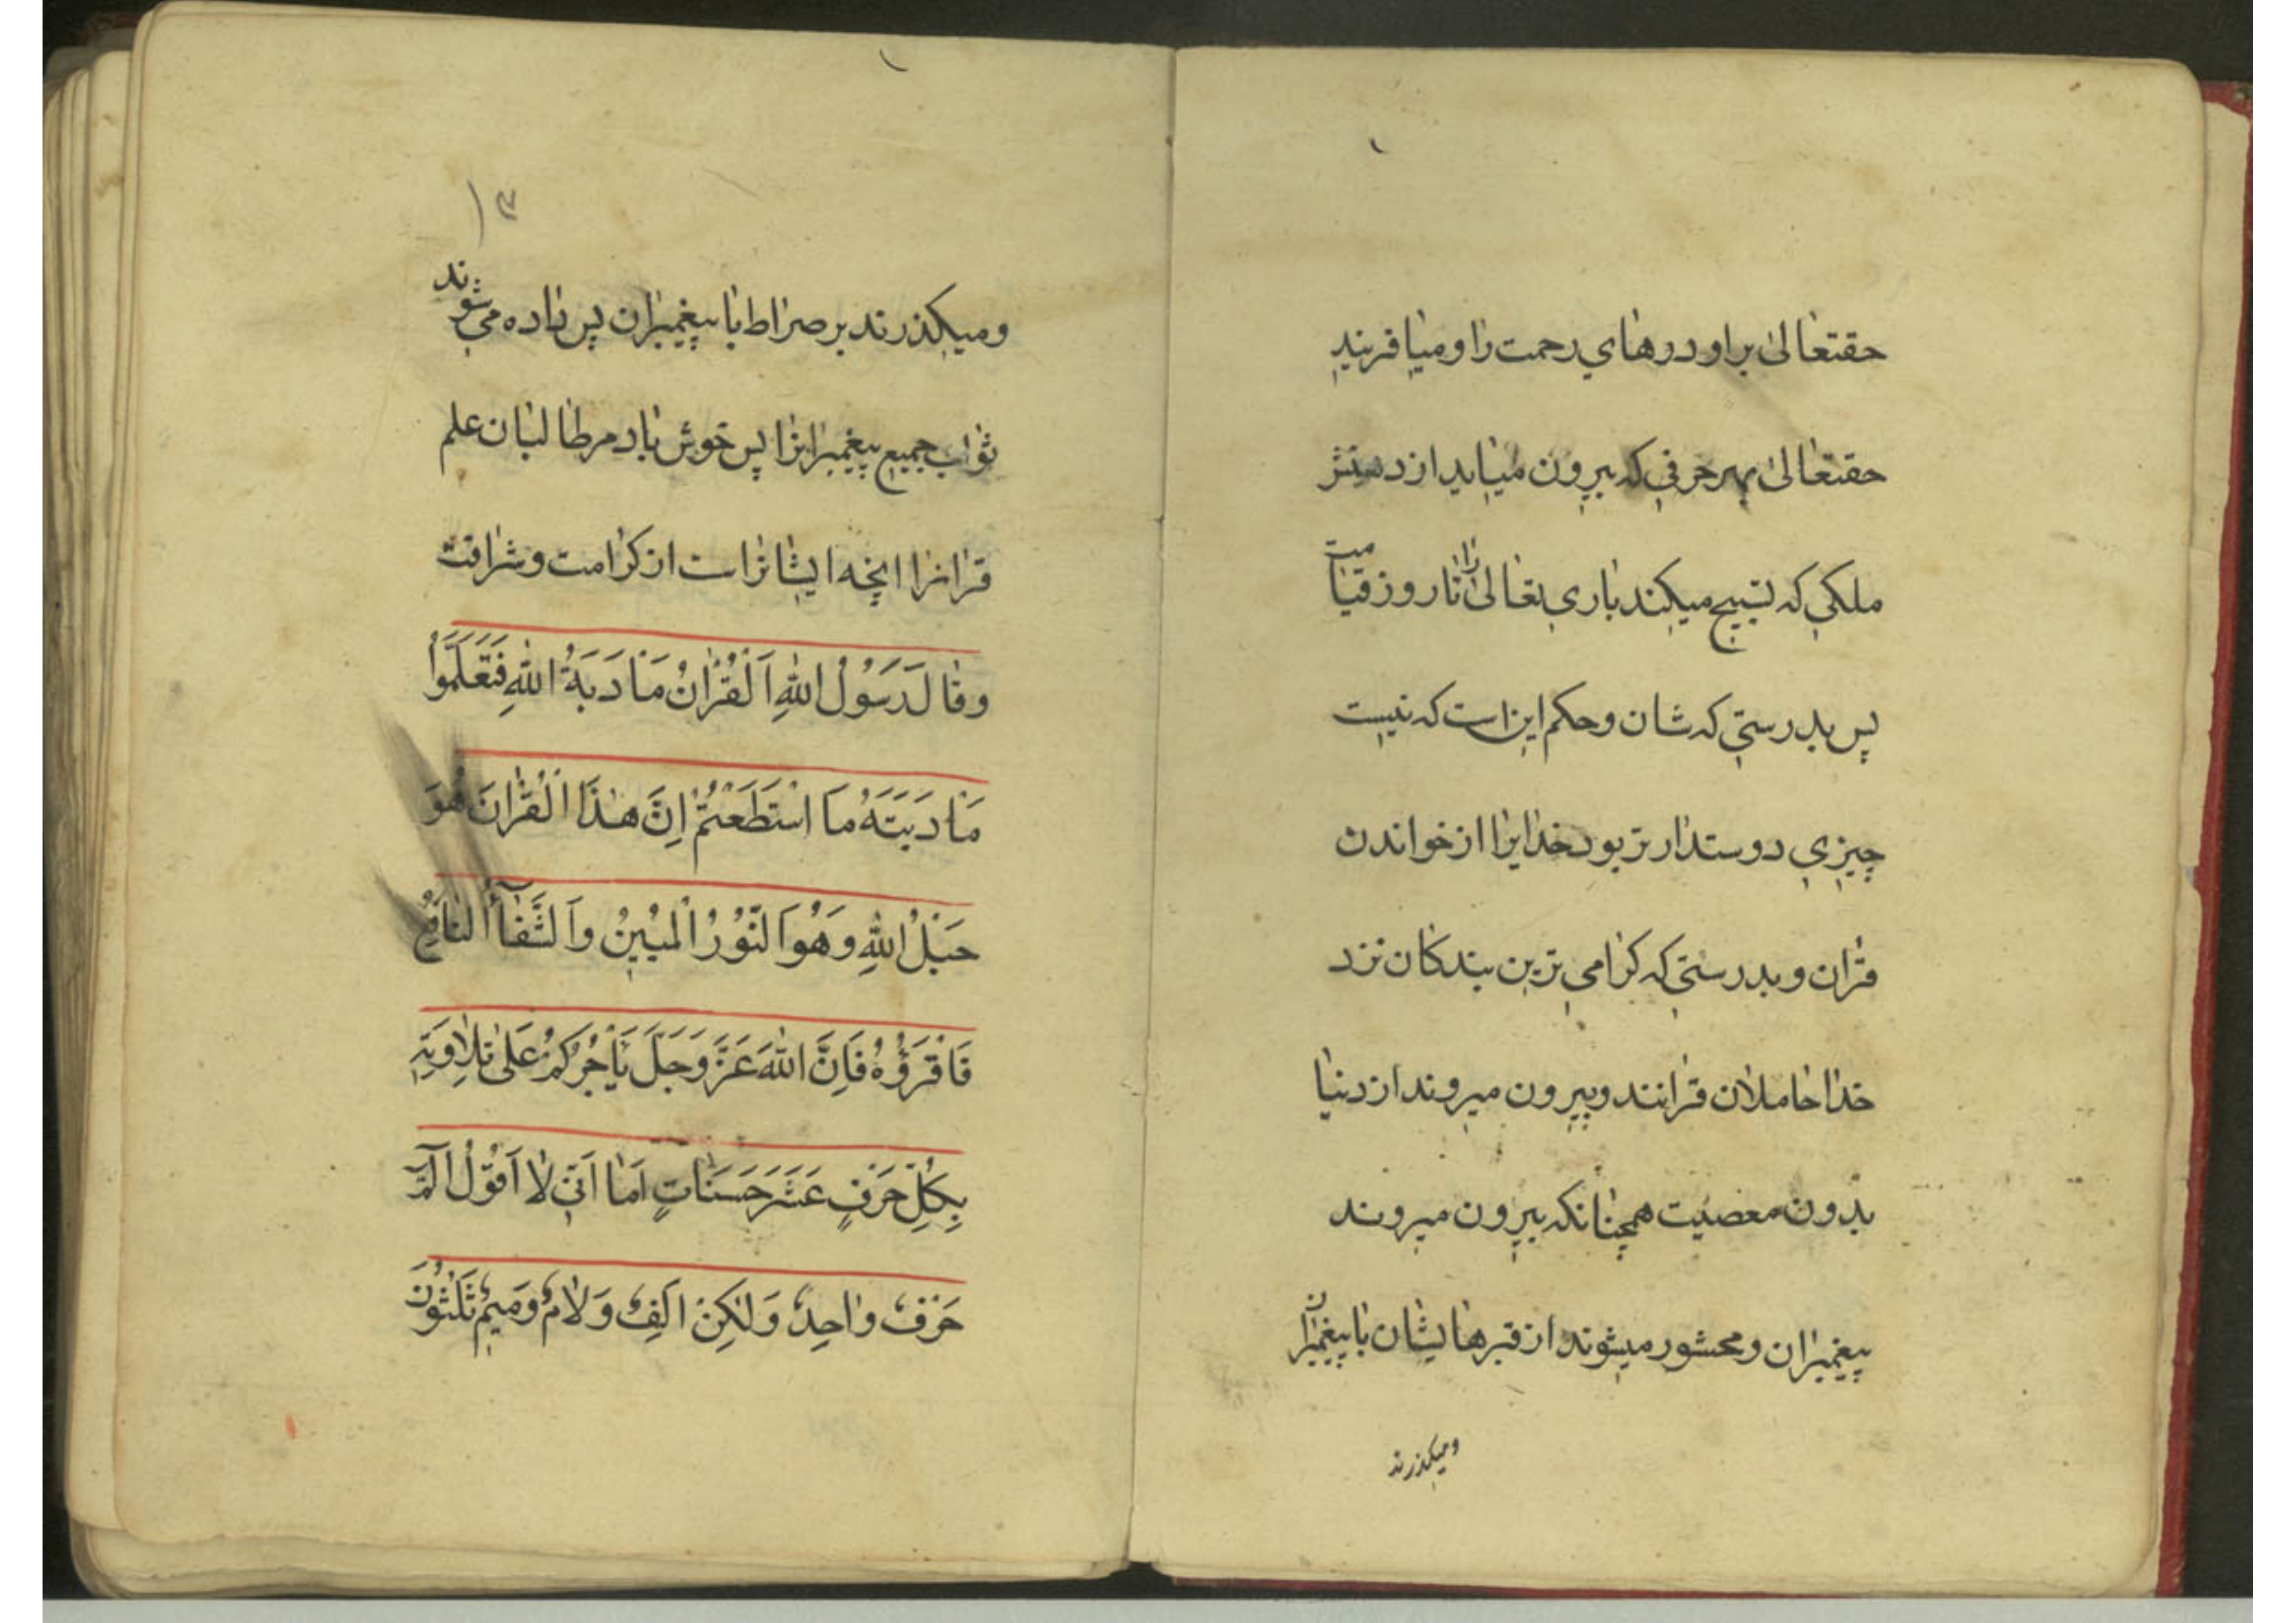 حقتعالی براو درهای رحمت را و میافریند
حقتعالی بهر حرفی که بیرون میاید از دهنش
ملکی که تسبیح میکند باری تعالی را تا روز قیامت
پس بدرستی که شان و حکم این است که نیست
چیزی دوستدارتر بود خدایرا از خواندن
قرآن و بدرستی که کرامی ترین بندکان نزد
خدا حاملان قرانند و بیرون میروند از دنیا
بدون معصیت همچنانکه بیرون میروند
پیغمبران و محشور میشوند از قبرهایشان با پیغمبران
ومیکذرند
۱۳
ومیکذرند بر صراط با پیغمبران پس داده میشوند
ثواب جمیع پیغمبرانرا پس خوش باد مر طالبان علم
قرانرا انچه ایشانراست از کرامت و شرافت
وقالَ رَسُولُ اللهِ اَلْقُرْانُ مَأدَبَةُ اللهِ فَتَعَلَّمُوا
مَأدَبَتَهُ مَا اسْتَطَعْتُمْ اِنَّ هٰذَا الْقُرْانَ هُوَ
حَبْلُ اللهِ وَهُوَ النُّوْرُ الْمُبِيْنُ وَالشَّفَآءُ النافِعُ
فَاقْرَؤُهُ فَاِنَّ اللهَ عَزَّ وَجَلَّ يَأْجُرُكُمْ عَلىٰ تِلاوَتِهِ
بِكُلِّ حَرْفٍ عَشَرَ حَسَنَاتٍ اَمٰا اَنّي لاٰ اَقُوْلُ الٓمّٓ
حَرْفٌ وٰاحِدٌ وَلٰكِنْ اَلِفٌ وَلاٰمٌ وَميمٌ ثَلٰثُوْنَ